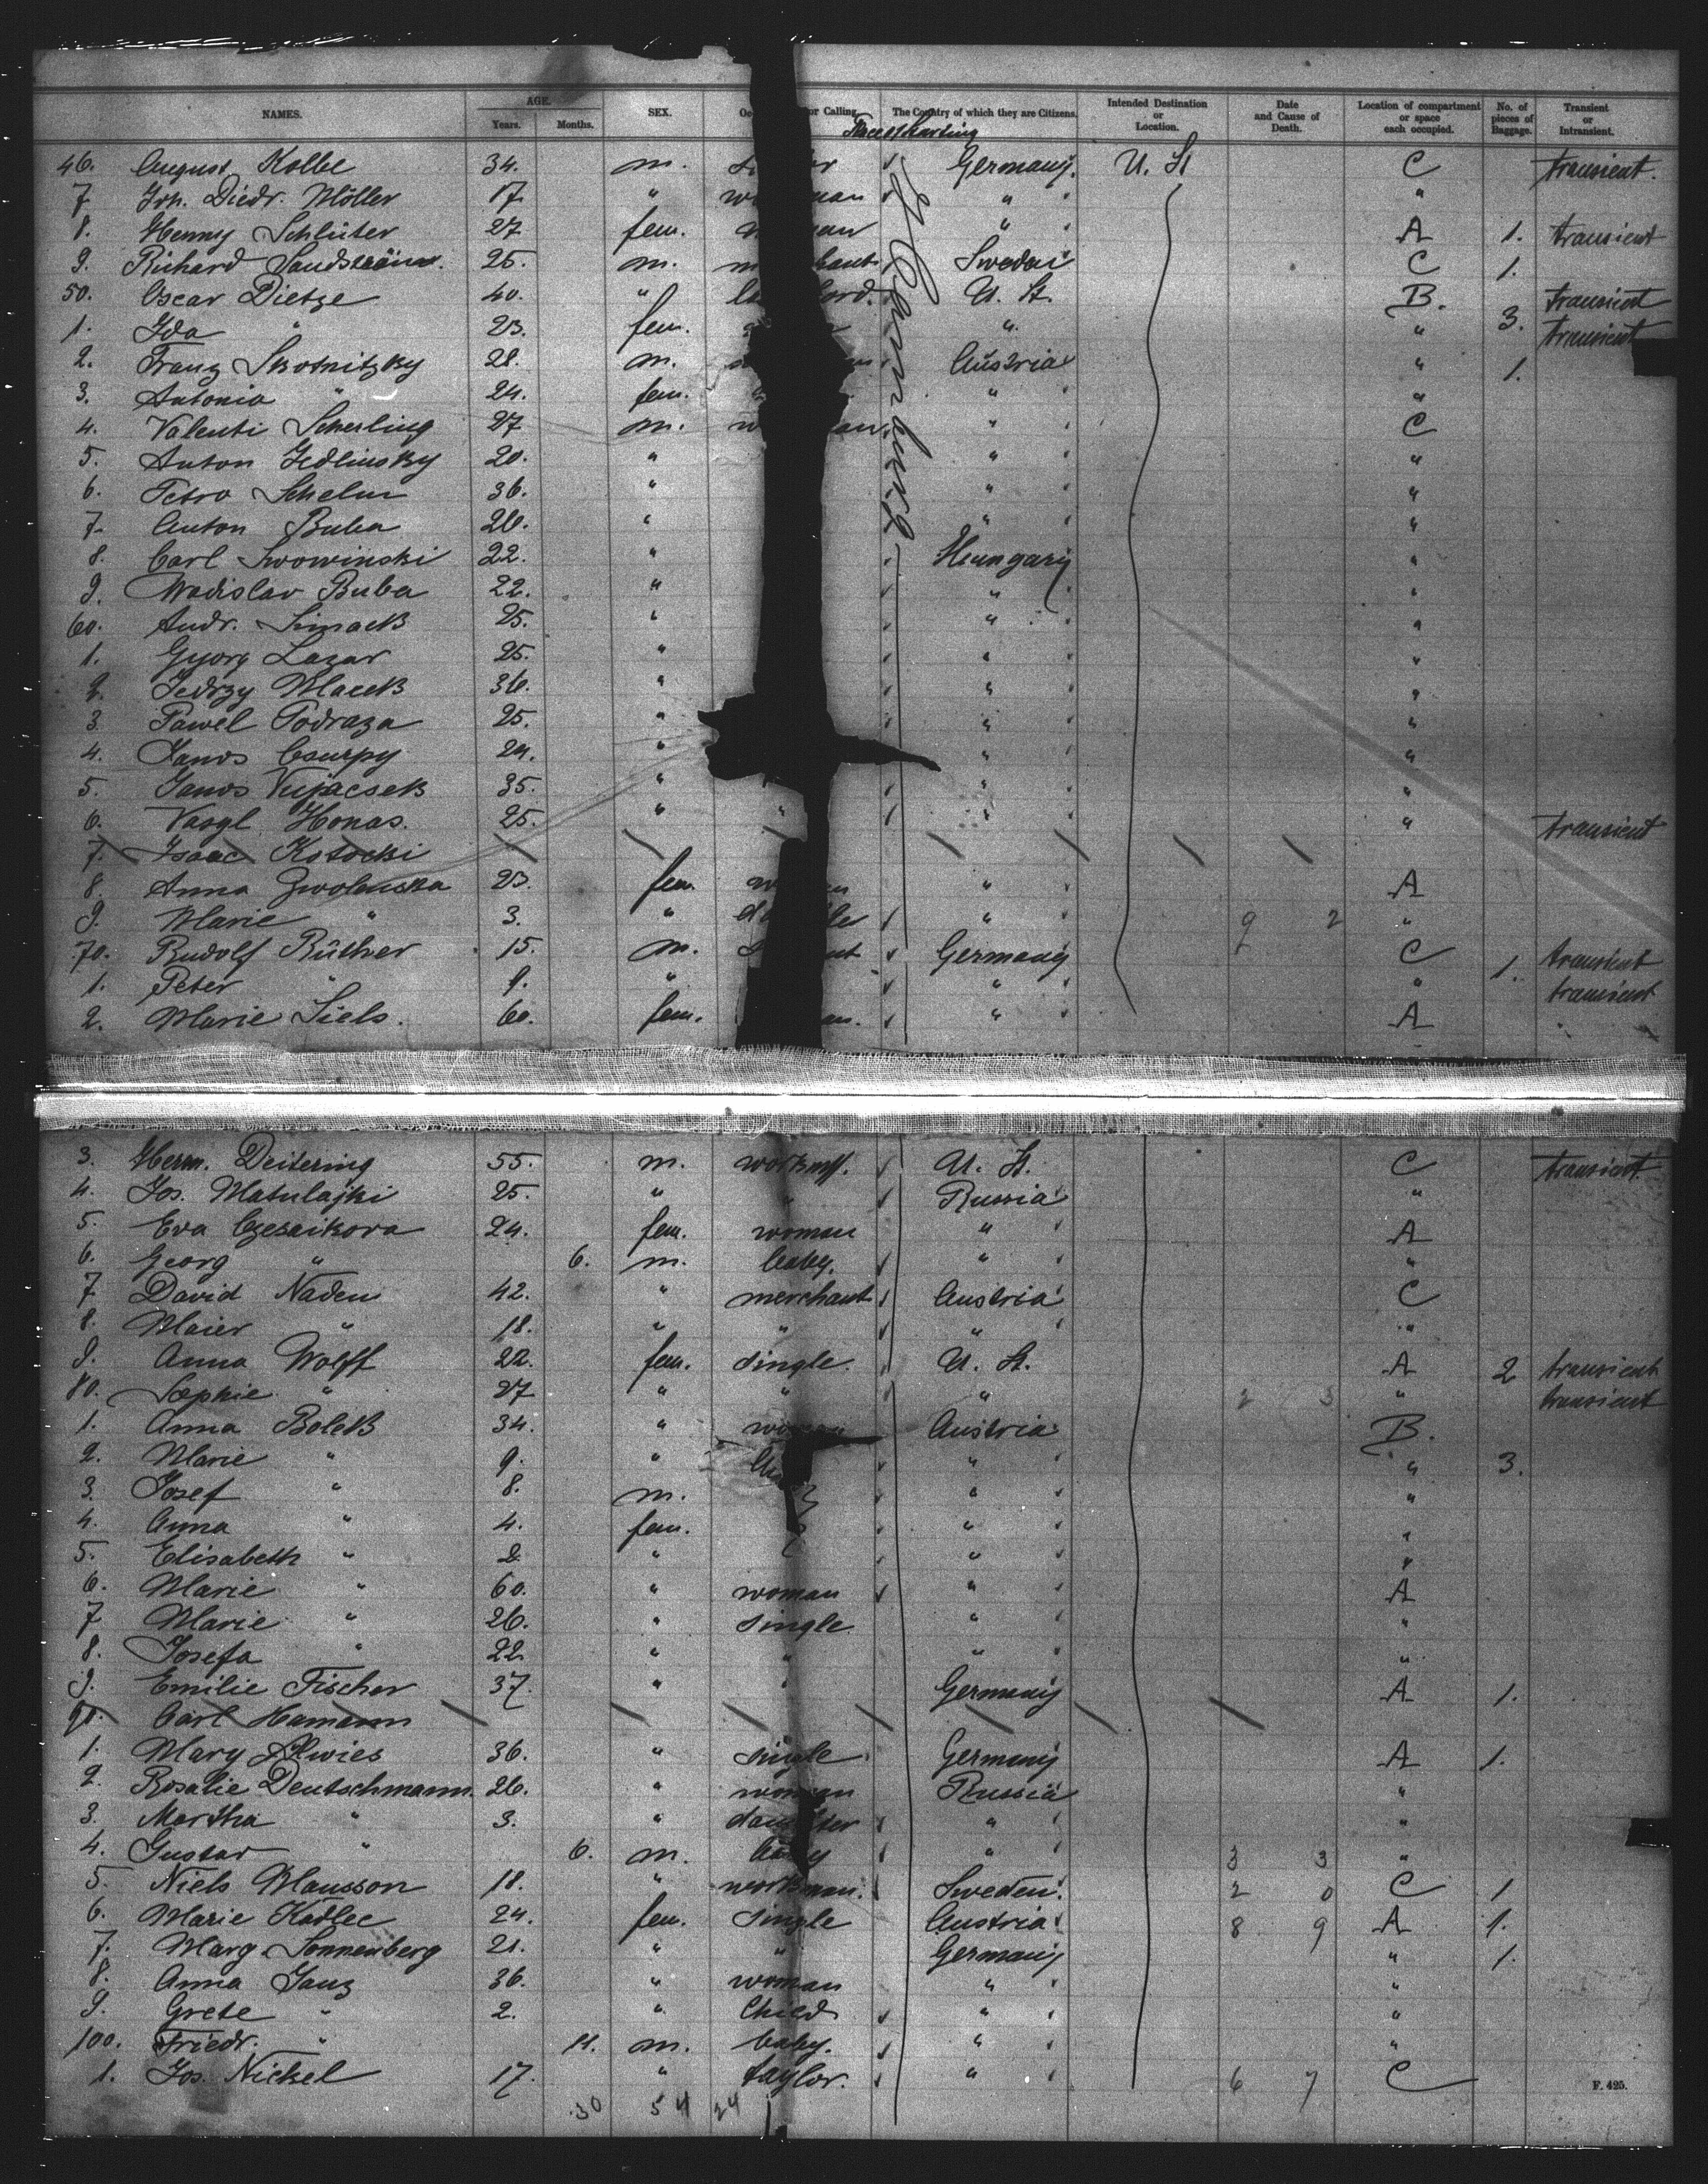 NAMES. AGE. Years. Months. SEX. or Calling. The Country of which they are Citizens. Intended Destination or Location. Date and Cause of Death. Location of compartment or space each occupied. No. of pieces of Baggage. Transient or Intransient.
46. August Kolbe 34. m. Germany. U. St C transient.
7 Joh. Diedr. Möller 17. " " "
8. Henny Schlüter 27 fem. " A 1. transient
9. Richard 25. m. Sweden C 1.
50. Oscar Dietze 40. " U. St. B. transient
1. Ida " 23. fem. " " 3. transient
2. Franz Skotnitzky 28. m. Austria " 1.
3. Antonia " 24. fem. " "
4. Valenti Scherling 27 m. " C
5. Anton Jedlinsky 20. " " "
6. Petro Schelur 36. " " "
7. Anton Buba 26. " " "
8. Carl Swowinski 22. " Hungary "
9. Wadislav Buba 22. " " "
60. Andr. Simack 25. " " "
1. Gyorg Lazar 25. " " "
2. Jedrzy Macek 36. " " "
3. Pawel Podraza 25. " " "
4. Janos Csurpy 24. " " "
5. Janos Vujacsek 35. " " "
6. Vasyl Honas. 25. " " " " transient
7. Isaac Kotocki
8. Anna Zwolenska 23. fem. " A
9. Marie " 3. " " 9 2 "
70. Rudolf Rüther 15. m. Germany C 1. transient
1. Peter " 9. " " " transient
2. Marie Siels. 60. fem. " A
Hamburg
3. Herm. Deitering 55. m. workm. U. St. C transient
4. Jos. Matulajki 25. " " Russia "
5. Eva Czesaikova 24. fem. woman " A
6. Georg " 6. m. baby. " "
7 David Naden 42. " merchant Austria C
8. Maier " 18. " " " "
9. Anna Wolff 22. fem. single. U. St. A 2 transient
80. Sophie " 27 " " " 2 3 " transient
1. Anna Bolek 34. " woman Austria B.
2. Marie " 9. " " " 3.
3. Josef " 8. m. " "
4. Anna " 4. fem. " "
5. Elisabeth " 2 " " "
6. Marie " 60. " woman " A
7 Marie " 26. " single. " "
8. Josefa " 22. " " " "
9. Emilie Fischer 37. " " Germany A 1.
90. Carl Hamann
1. Mary 36. " single Germany A 1.
2. Rosalie Deutschmann. 26. " woman Russia "
3. Martha " 3. " daughter " "
4. Gustav " 6. m. baby " 3 3 "
5. Niels Mansson 18. " workman. Sweden. 2 0 C 1
6. Marie Kadlec 24. fem. single Austria 8 9 A 1.
7. Marg. Sonnenberg 21. " " Germany " 1.
8. Anna Janz 36. " woman " "
9. Grete " 2. " Child " "
100. Friedr. " 11. m. baby. " "
1. Jos. Nickel 17. " taylor. " 6 7 C
F. 425.
30 54 24